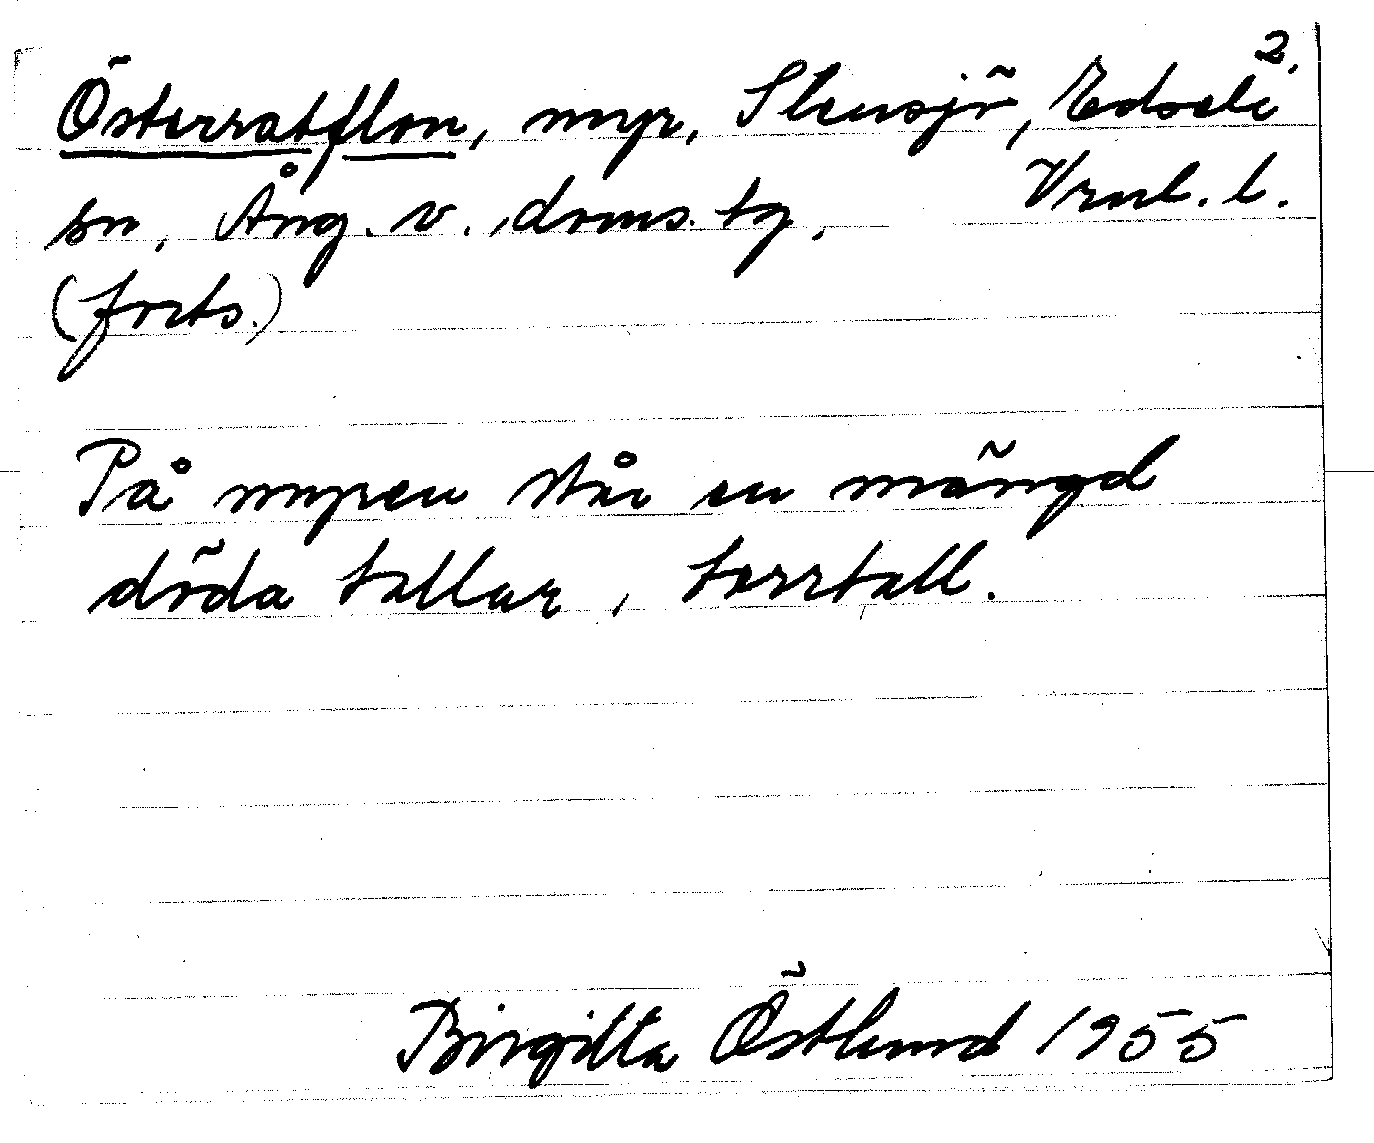 2.
Österratflon, myr, Stensjö, Edsele
sn, Ång. v. doms. tg, Vrnl. l.
(forts.)
På myren står en mängd
döda tallar, torrtall.
Birgitta Östlund 1955